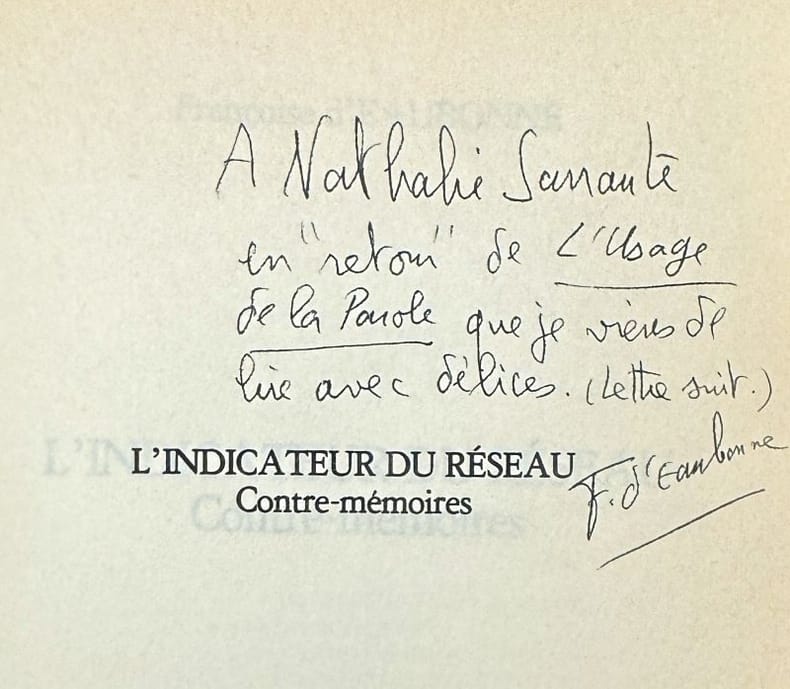 A Nathalie Sarraute
en "retour" de L'Usage
de la Parole que je viens de
lire avec délices. (Lettre suit.)
F. d'Eaubonne
L'INDICATEUR DU RÉSEAU
Contre-mémoires